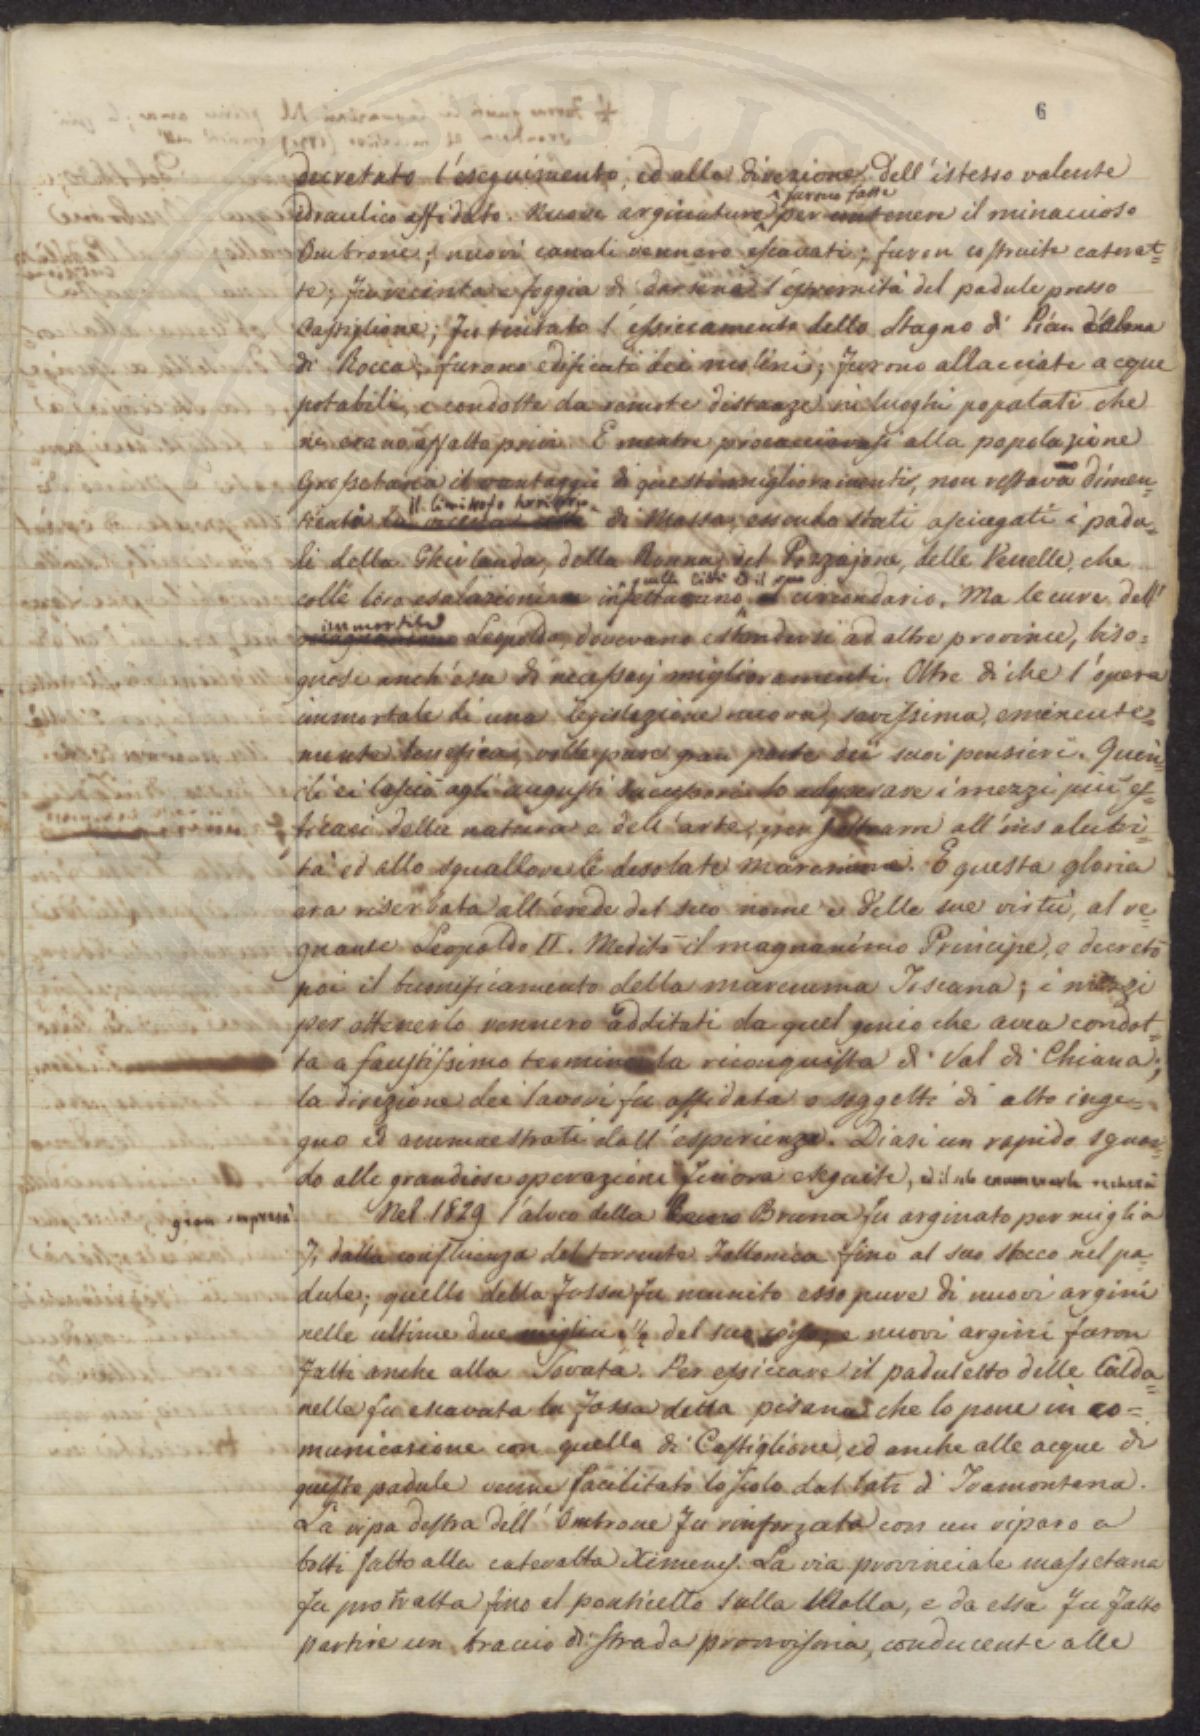 6
decretato l'eseguimento, ed alla direzione dell'istesso valente
idraulico affidato. Nuove arginature furono fatte per contenere il minaccioso
Ombrone; nuovi canali vennero escavati; furon costruite caterat=
te; fu recinta a foggia di darsena l'estremità del padule presso
Castiglione; fu tentato l'essiccamento dello Stagno di Pian d'Alma
di Rocca; furono edificati dei mulini; furono allacciate acque
potabili, e condotte da remote distanze ni luoghi popolati che
ne erano affatto privi. E mentre procacciavasi alla popolazione
Grossetana il vantaggio di questi miglioramenti, non restava dimen=
ticato il limitrofo territorio di Massa, essendo stati asciugati i padu=
li della Ghirlanda, della Ronna, del Pozzajone, delle Venelle, che
colle loro esalazioni infettavano quella città e il suo circondario. Ma le cure dell'
immortale Leopoldo, dovevano estendersi ad altre province, biso=
gnose anch'esse di necessarj miglioramenti. Oltre di che l'opera
immortale di una legislazione nuova, savissima, eminente=
mente benefica, volle pure gran parte dei suoi pensieri. Quin=
di ei lasciò agli augusti successori lo adoperare i mezzi più ef=
ficaci della natura e dell'arte, per sottrarre all'insalubri=
tà ed allo squallore le desolate maremme. E questa gloria
era riserbata all'erede del suo nome e delle sue virtù, al re=
gnante Leopoldo II. Meditò il magnanimo Principe, e decretò
poi il bonificamento della maremma Toscana; i mezzi
per ottenerlo vennero additati da quel genio che avea condot=
ta a faustissimo termine la riconquista di Val di Chiana;
la direzione dei lavori fu affidata a soggetti di alto inge=
gno ed ammaestrati dall'esperienza. Diasi un rapido sguar=
do alle grandiose operazioni finora eseguite, ed il solo enumerarle
gran impresa.
Nel 1829 l'alveo della Bruna fu arginato per miglia
7, dalla confluenza del torrente Follonica fino al suo sbocco nel pa=
dule; quello della Fossa fu munito esso pure di nuovi argini
nelle ultime due miglia ½ del suo corso, e nuovi argini furon
fatti anche alla Sovata. Per essiccare il paduletto delle Calda=
nelle fu escavata la fossa detta pisana che lo pone in co=
municazione con quella di Castiglione, ed anche alle acque di
questo padule venne facilitato lo scolo dal lato di Tramontana.
La ripa destra dell'Ombrone fu rinforzata con un riparo a
botti fatto alla cateratta Ximenes. La via provinciale massetana
fu protratta fino al ponticello sulla Molla, e da essa fu fatto
partire un braccio di strada provvisoria, conducente alle